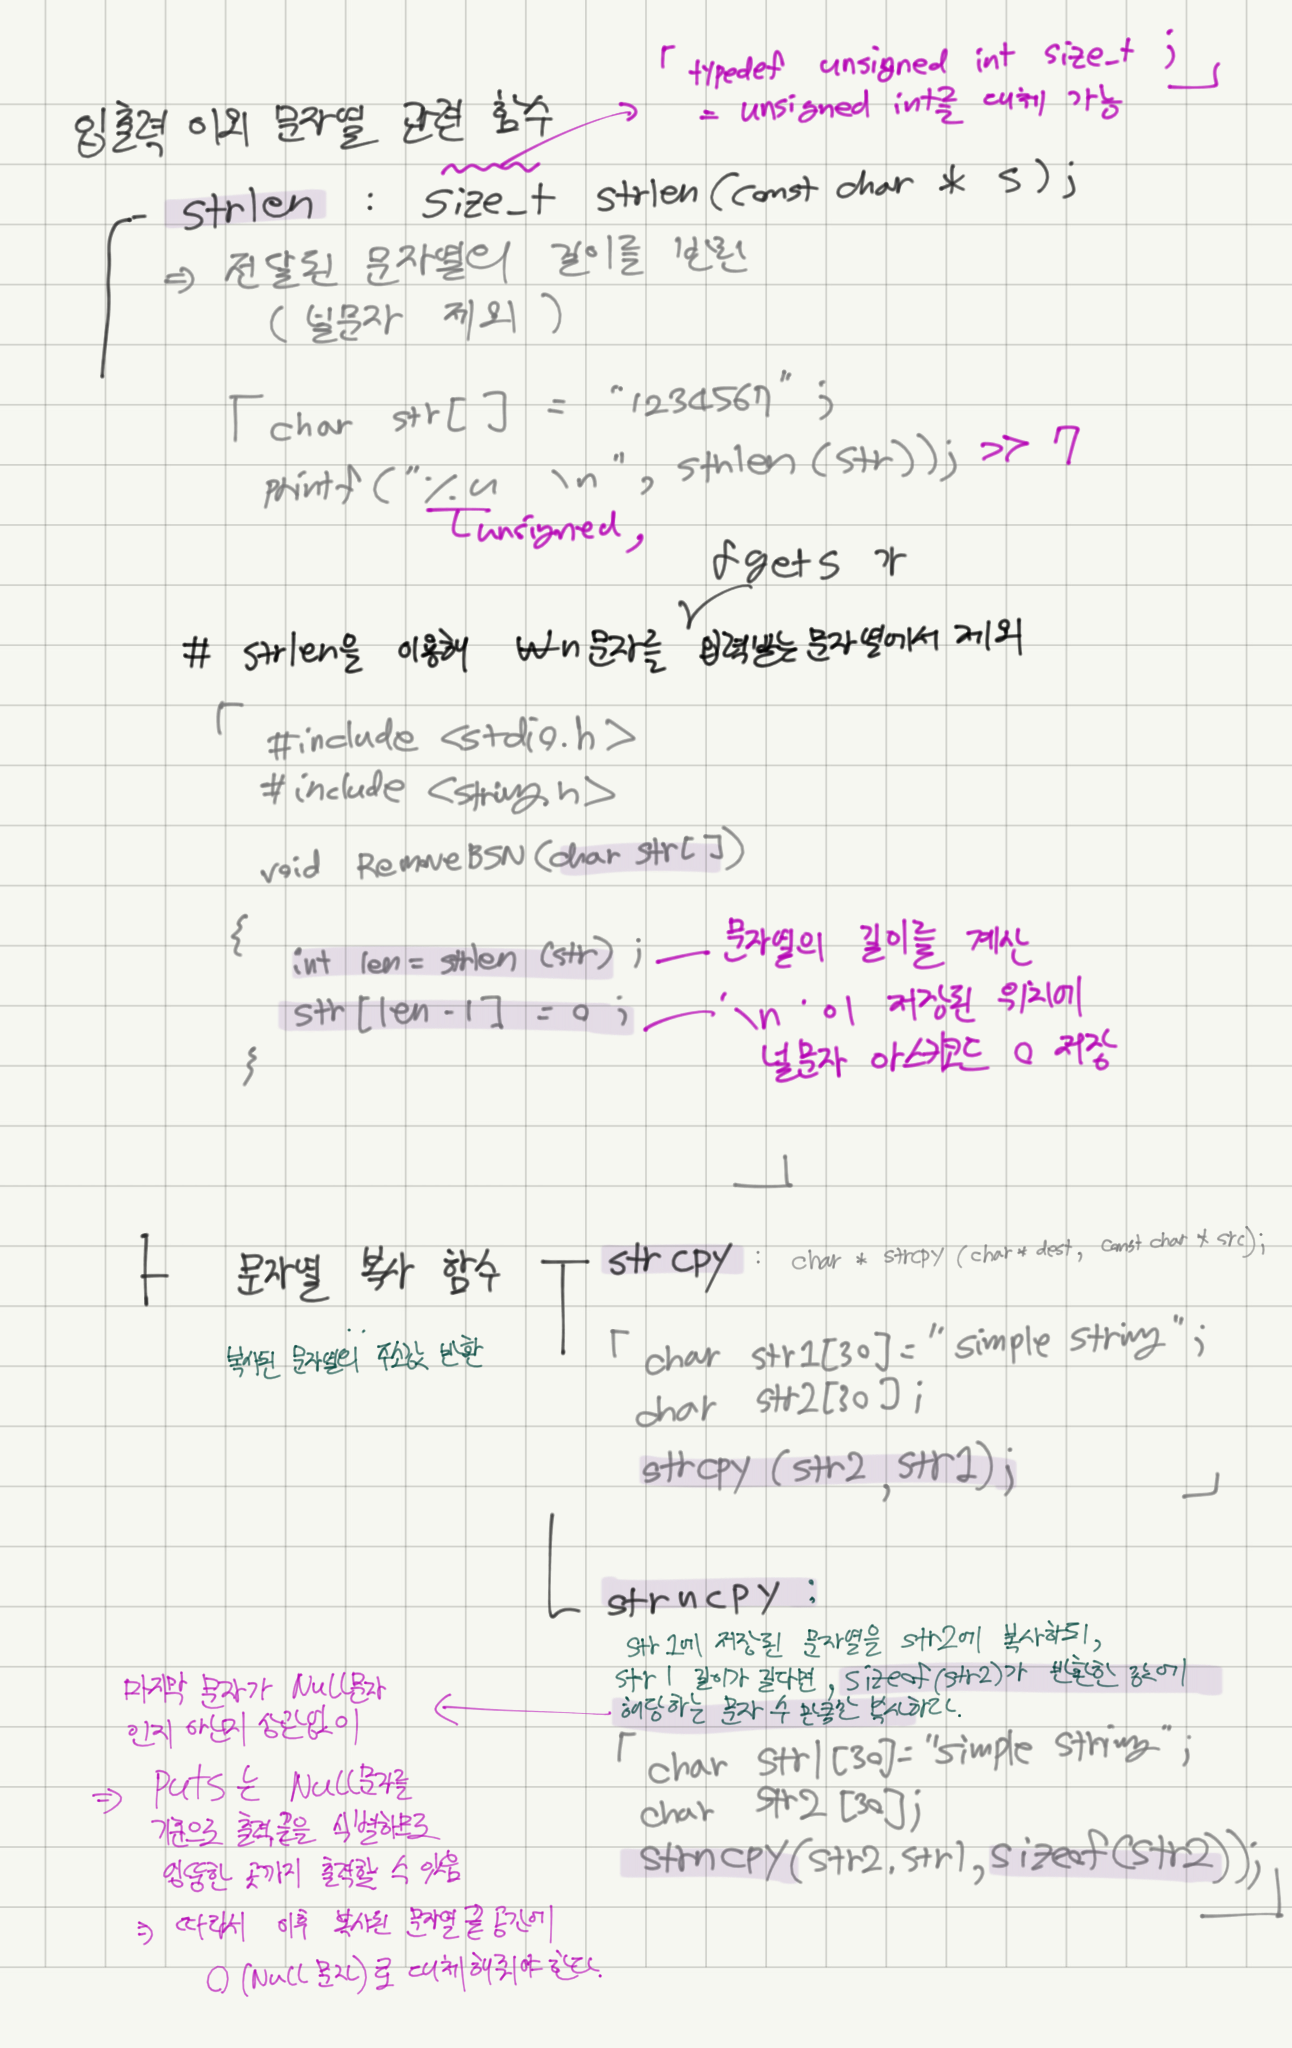 「 typedef unsigned int size_t ; 」
= unsigned int를 대체 가능
입출력 이외 문자열 관련 함수
strlen : size_t strlen(const char * s);
⇒ 전달된 문자열의 길이를 반환
( 널문자 제외 )
「 char str[] = "1234567" ;
printf("%u \n", strlen(str)); >> 7
unsigned,
fgets 가
# strlen을 이용해 ₩n문자를 입력받는 문자열에서 제외
「 #include <stdio.h>
#include <string.h>
void RemoveBSN(char str[])
{
int len = strlen (str) ; 문자열의 길이를 계산
str[len-1] = 0 ; '\n'이 저장된 위치에
널문자 아스키코드 0 저장
}
」
문자열 복사 함수
복사된 문자열의 주소값 반환
strcpy : char * strcpy (char* dest, const char * src);
「 char str1[30]="simple string";
char str2[30];
strcpy (str2, str1); 」
strncpy :
str1에 저장된 문자열을 str2에 복사하되,
str1 길이가 길다면, sizeof(str2)가 반환한 값에
해당하는 문자 수 만큼만 복사하라.
「 char str1[30]="simple string";
char str2 [30];
strncpy(str2, str1, sizeof(str2)); 」
마지막 문자가 Null문자
인지 아닌지 상관없이
⇒ puts 는 Null문자를
기준으로 출력 끝을 식별하므로
엉뚱한 곳까지 출력할 수 있음
⇒ 따라서 이후 복사된 문자열 끝 공간에
0 (Null 문자)로 대체해줘야 한다.